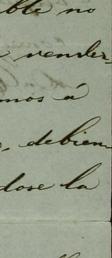 ble no
e vender
mos á
, debien
dose la